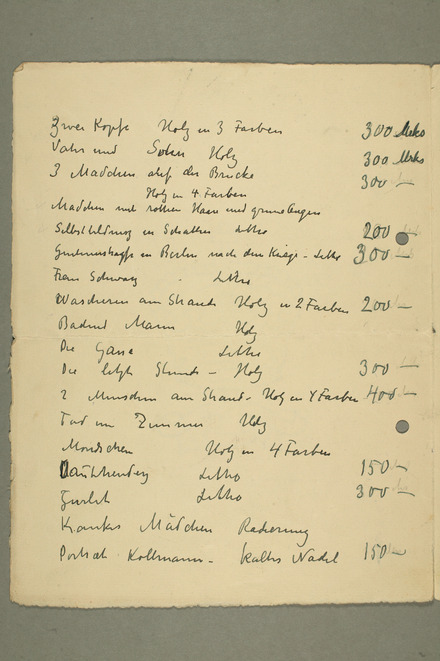 Zwei Köpfe Holz in 3 Farben 300 Mks
Vater und Sohn Holz 300 Mks
3 Mädchen auf der Brücke 300 —
Holz in 4 Farben
Mädchen mit rothen Haar und grüne Augen
Selbstbildnis in Schatten Litho 200
in Berlin nach dem Kriege - Litho 300 —
Frau Schwarz - Litho
Wascherin am Strande Holz in 2 Farben 200 —
Badend Mann Holz
Die Gasse Litho
Die letzte Stunde - Holz 300 —
2 Menschen am Strand - Holz in 4 Farben 400 —
Tod im Zimmer Holz
Mondschein Holz in 4 Farben
Dauthendey Litho 150 —
Gurlitt Litho 300 —
Krankes Mädchen Radierung
Portrait Kollmann - kalte Nadel 150 —